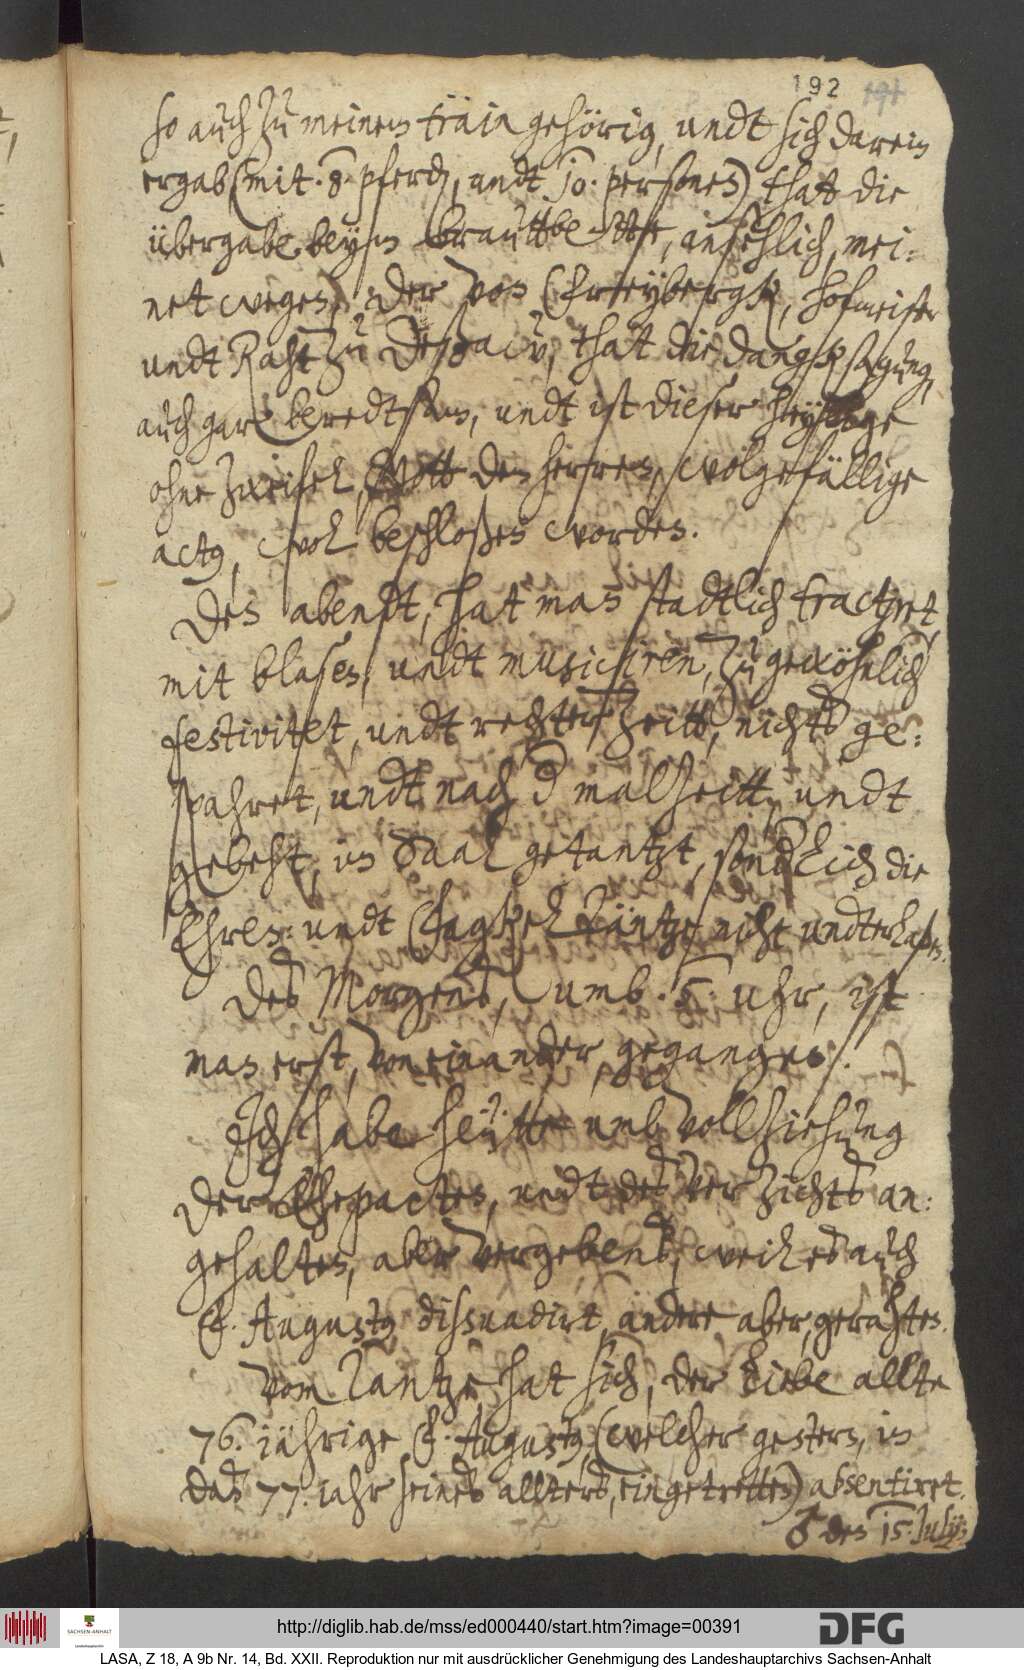 192 191
so auch zu meinem train gehörig, undt sich darein
ergab (mit 8 pferden, undt 10 personen) that die
übergabe beym brauttbette, ansehlich, mei-
net wegen, Der von Freybergk, hofmeister
undt Raht zu Deßaw, that die dangksagung,
auch gar beredtsam, undt ist dieser heylige
ohne zweifel, Gott dem herren, wolgefällige
actus, wol beschloßen worden.
Den abendt, hat man stadtlich tractiret
mit blasen, undt musiciren, zu gewöhnlicher
festivitet, undt rechter zeitt, nichts ge-
spahret, undt nach der malzeitt, undt
gebeht, im Saal getantzt, sonderlich die
Ehren- undt Fagkel Täntze nicht undterlaßen.
Des Morgends, umb 5 uhr, ist
man erst, von einander gegangen.
Ich habe heütte umb vollziehung
der Ehepacten, undt des verzichts an-
gehalten, aber vergebens, weil es auch
F. Augustus dissuadirt, andere aber, gerahten.
Vom Tantze hat sich, der liebe allte
76. iährige F. Augustus, (welcher gestern, in
das 77. iahr seines allters, eingetretten) absentiret.
♂ den 15. Julij:
http://diglib.hab.de/mss/ed000440/start.htm?image=00391
SACHSEN-ANHALT
Landeshauptarchiv
DFG
LASA, Z 18, A 9b Nr. 14, Bd. XXII. Reproduktion nur mit ausdrücklicher Genehmigung des Landeshauptarchivs Sachsen-Anhalt